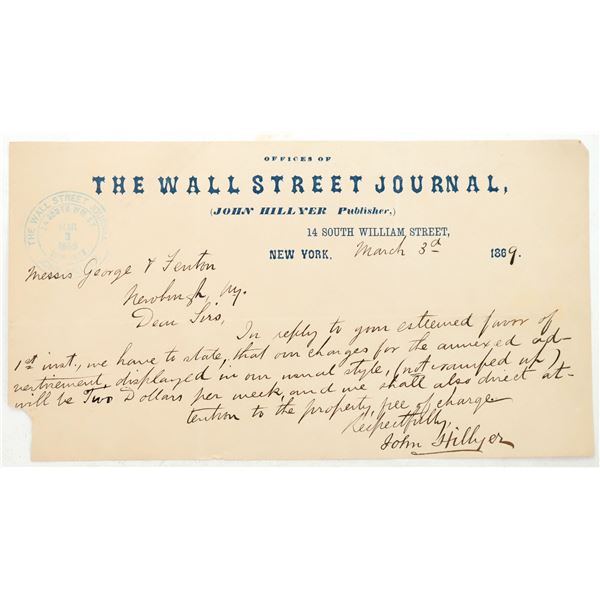 OFFICES OF
THE WALL STREET JOURNAL,
(JOHN HILLYER Publisher.)
14 SOUTH WILLIAM STREET,
NEW YORK, March 3d 1869.
THE WALL STREET JOURNAL
14 SOUTH WM. ST.
MAR
3
1869
Messrs George & Fenton
Newburgh, Ny.
Dear Sirs,
In reply to your esteemed favor of
1st inst., we have to state, that our charges for the annexed ad-
vertisement, displayed in our usual style, (not cramped up),
will be Two Dollars per week, and we shall also direct at-
tention to the property, free of charge
Respectfully,
John Hillyer